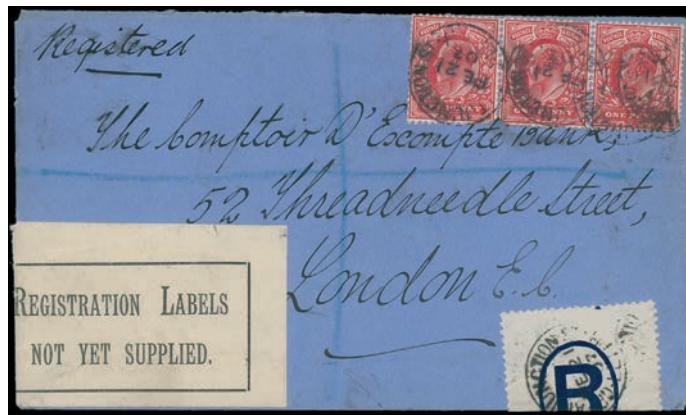 Registered
ONE PENNY
FE 21
04
The Comptoir D'Escompte Bank,
52 Threadneedle Street,
London E.C.
REGISTRATION LABELS
NOT YET SUPPLIED.
R